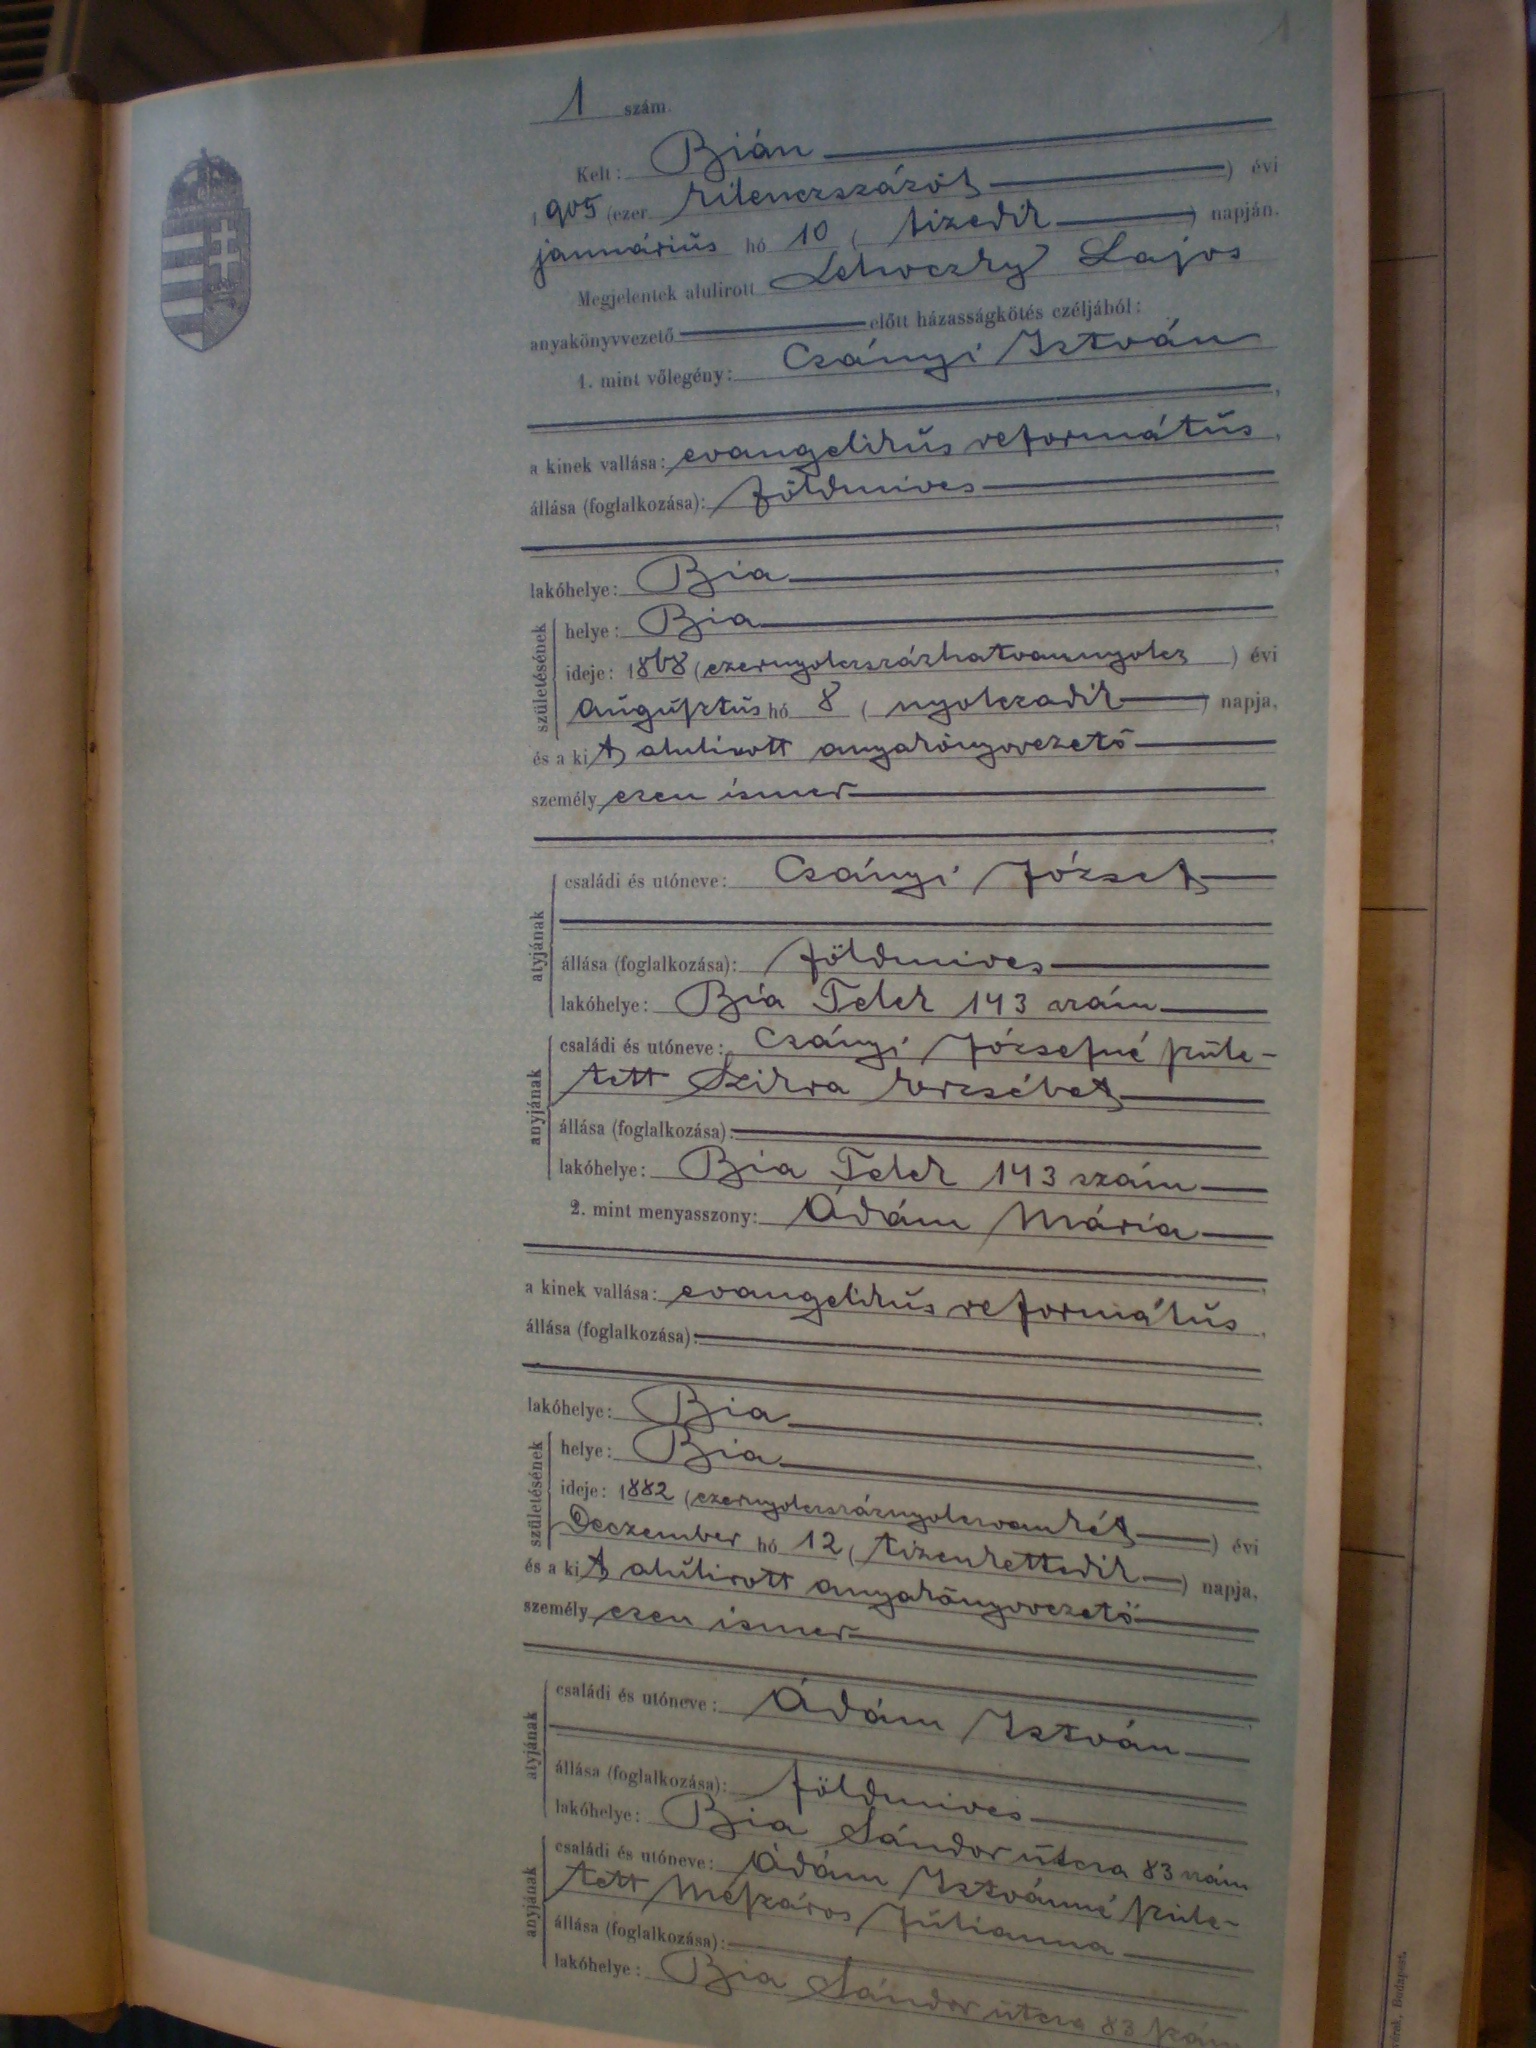 1
1 szám.
Kelt: Bián
1905 (ezer kilenczszázöt ) évi
januárius hó 10 ( tizedik ) napján.
Megjelentek alulirott Lehoczky Lajos
anyakönyvvezető előtt házasságkötés czéljából:
1. mint vőlegény: Csányi István
a kinek vallása: evangelikus református,
állása (foglalkozása): földmives
lakóhelye: Bia,
születésének
helye: Bia
ideje: 1868 (ezernyolczszázhatvannyolcz ) évi
augusztus hó 8 ( nyolczadik ) napja,
és a kit alulirott anyakönyvvezető
személyesen ismer
atyjának
családi és utóneve: Csányi József
állása (foglalkozása): földmives
lakóhelye: Bia Telek 143 szám
anyjának
családi és utóneve: Csányi Józsefné szüle-
tett Szikra Erzsébet
állása (foglalkozása):
lakóhelye: Bia Telek 143 szám
2. mint menyasszony: Ádám Mária
a kinek vallása: evangelikus református,
állása (foglalkozása):
lakóhelye: Bia
születésének
helye: Bia
ideje: 1882 (ezernyolczszáznyolczvankét ) évi
Deczember hó 12 ( tizenkettedik ) napja,
és a kit alulirott anyakönyvvezető
személyesen ismer
atyjának
családi és utóneve: Ádám István
állása (foglalkozása): földmives
lakóhelye: Bia Sándor útcza 83 szám
anyjának
családi és utóneve: Ádám Istvánné szüle-
tett Mészáros Julianna
állása (foglalkozása):
lakóhelye: Bia Sándor útcza 83 szám
Budapest.